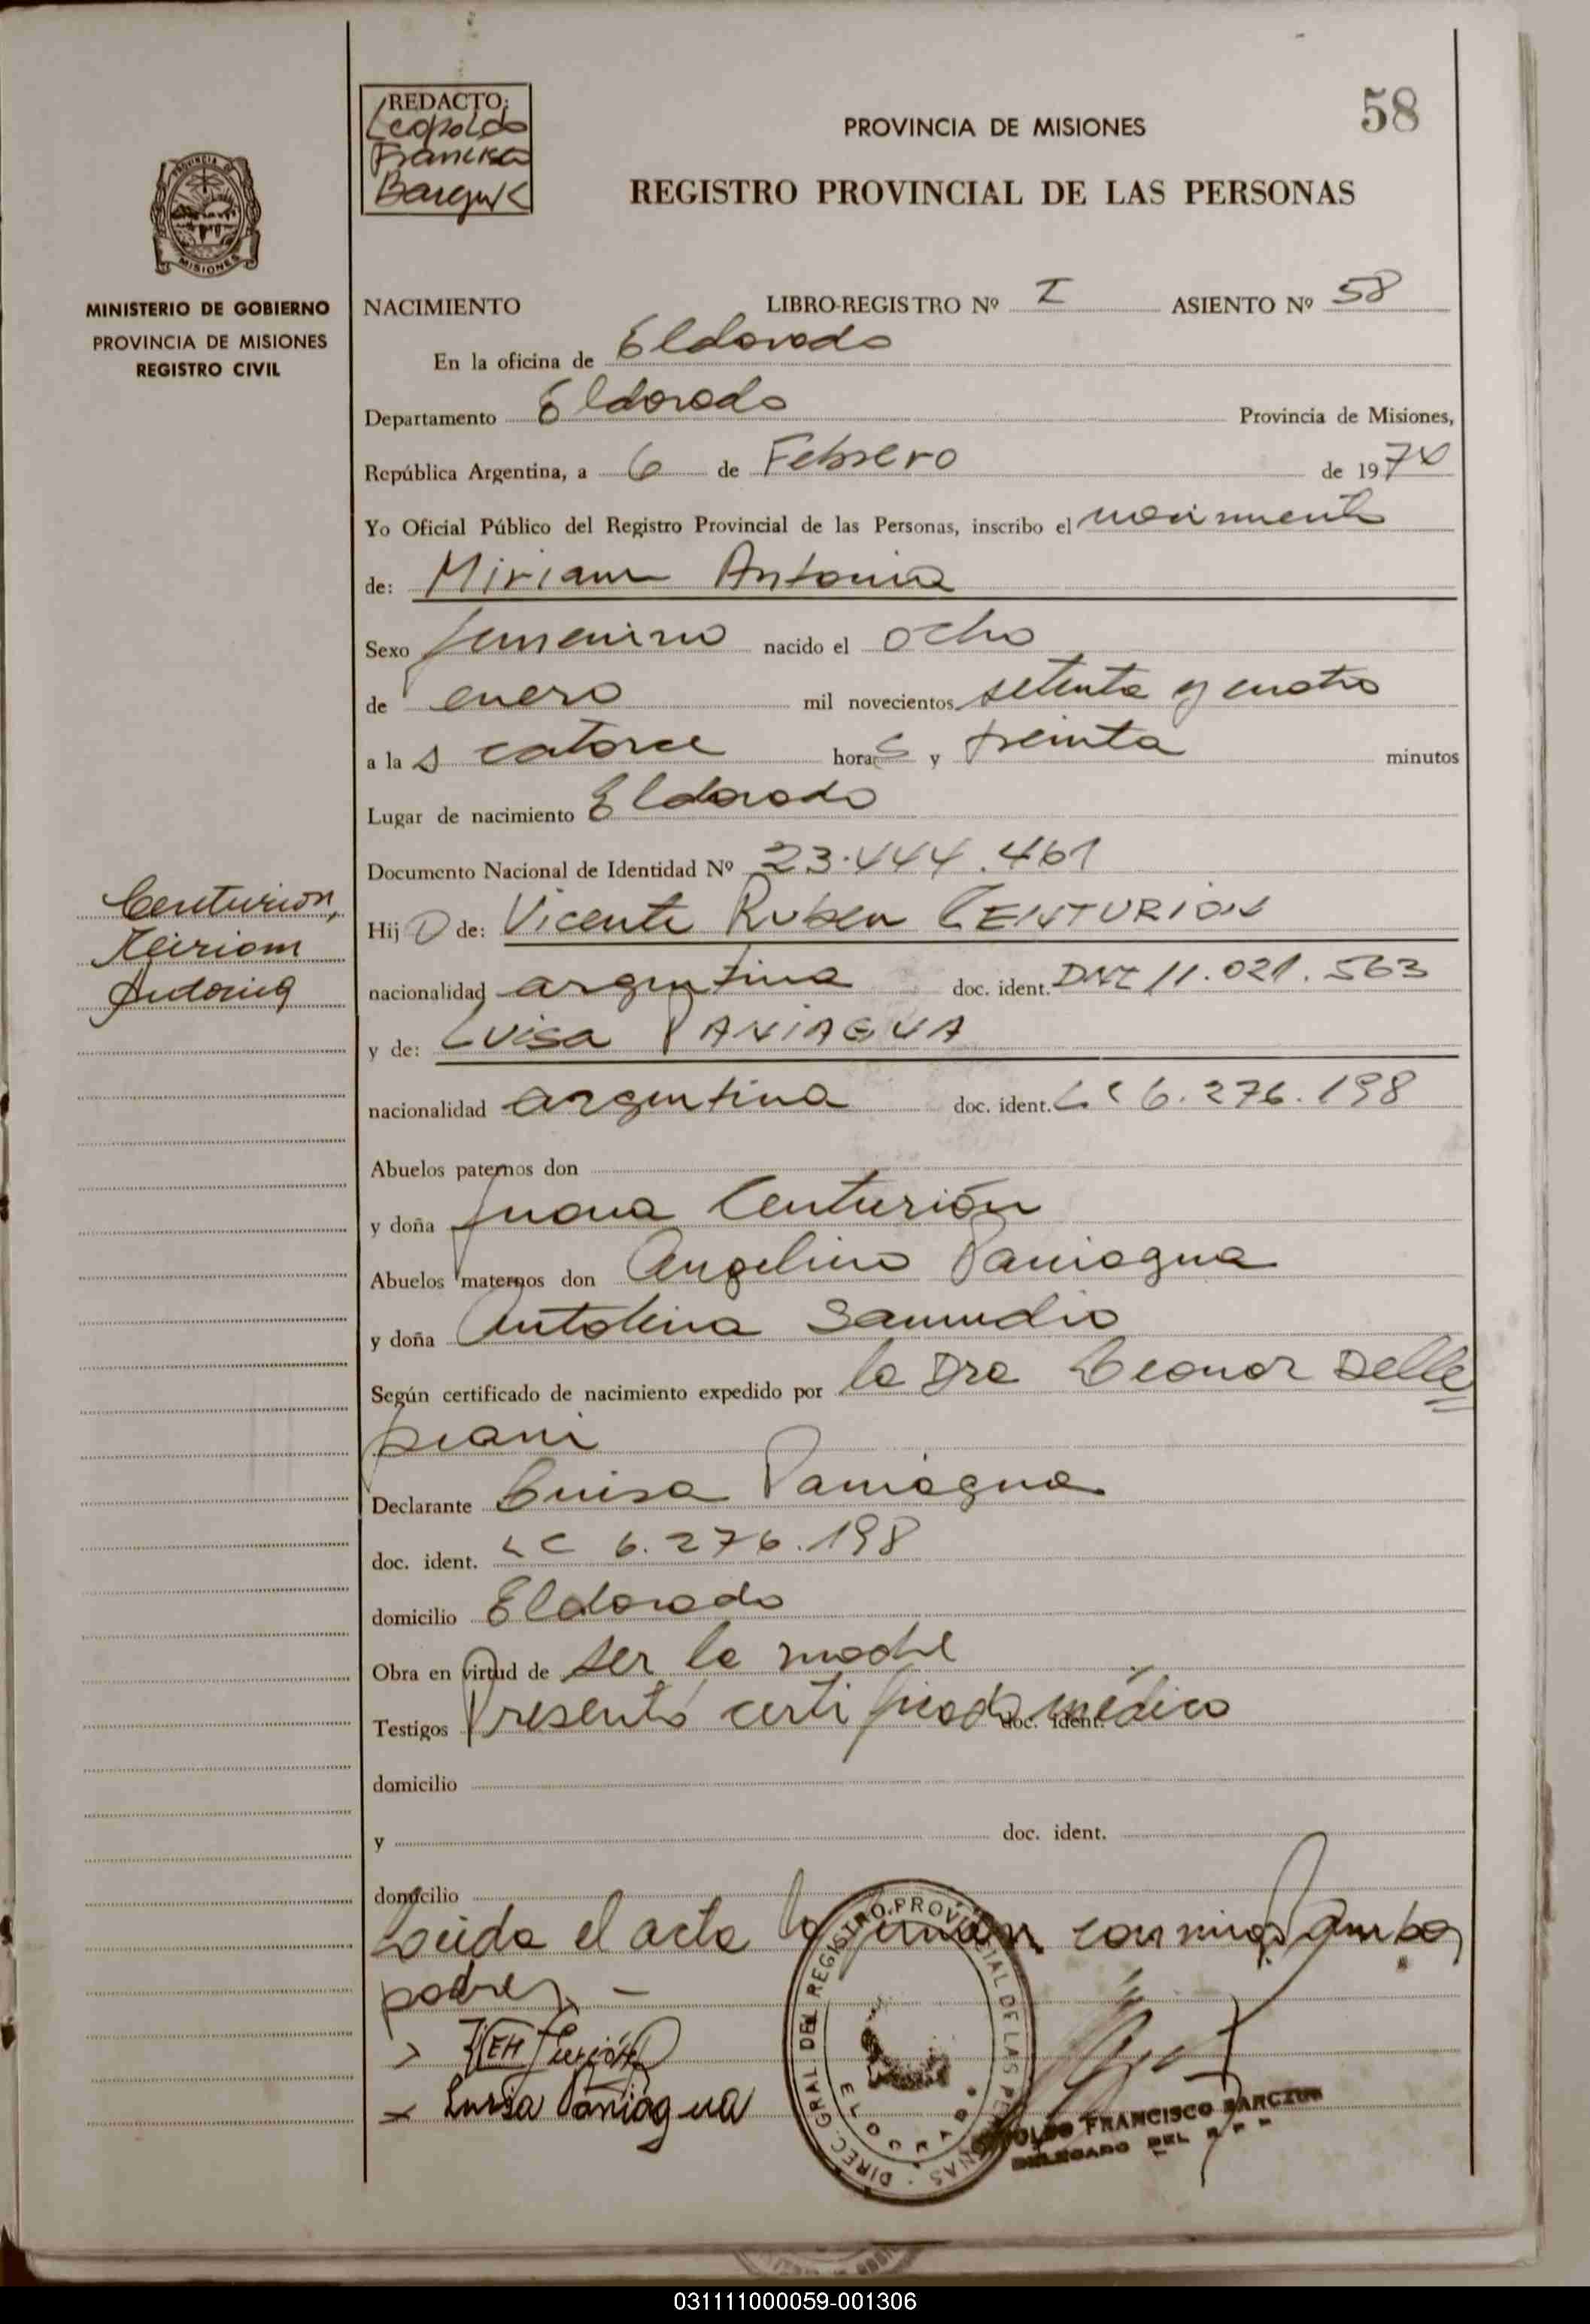 REDACTO:
Leopoldo
Francisco
58
PROVINCIA DE MISIONES
REGISTRO PROVINCIAL DE LAS PERSONAS
MISIONES
MINISTERIO DE GOBIERNO
PROVINCIA DE MISIONES
REGISTRO CIVIL
NACIMIENTO LIBRO-REGISTRO Nº I ASIENTO Nº 58
En la oficina de Eldorado
Departamento Eldorado Provincia de Misiones,
República Argentina, a 6 de Febrero de 1974
Yo Oficial Público del Registro Provincial de las Personas, inscribo el nacimiento
de: Miriam Antonia
Sexo femenino nacido el ocho
de enero mil novecientos setenta y cuatro
a las catorce horas y treinta minutos
Lugar de nacimiento Eldorado
Documento Nacional de Identidad Nº 23.444.461
Centurion,
Miriam
Antonia
Hija de: Vicente Ruben CENTURION
nacionalidad argentina doc. ident. DNI 11.021.563
y de: Luisa PANIAGUA
nacionalidad argentina doc. ident. LC 6.276.198
Abuelos paternos don
y doña Juana Centurión
Abuelos maternos don Angelino Paniagua
y doña Antolina Samudio
Según certificado de nacimiento expedido por la Dra Leonor Delle
piani
Declarante Luisa Paniagua
doc. ident. LC 6.276.198
domicilio Eldorado
Obra en virtud de ser la madre
Testigos Presentó certificado médico doc. ident.
domicilio
y doc. ident.
domicilio
Leida el acta la firman conmigo ambos
padres. —
Luisa Paniagua
DIREC. GRAL DEL REGISTRO PROVINCIAL DE LAS PERSONAS
ELDORADO
LEOPOLDO FRANCISCO BARCZUK
DELEGADO DEL R P P
031111000059-001306